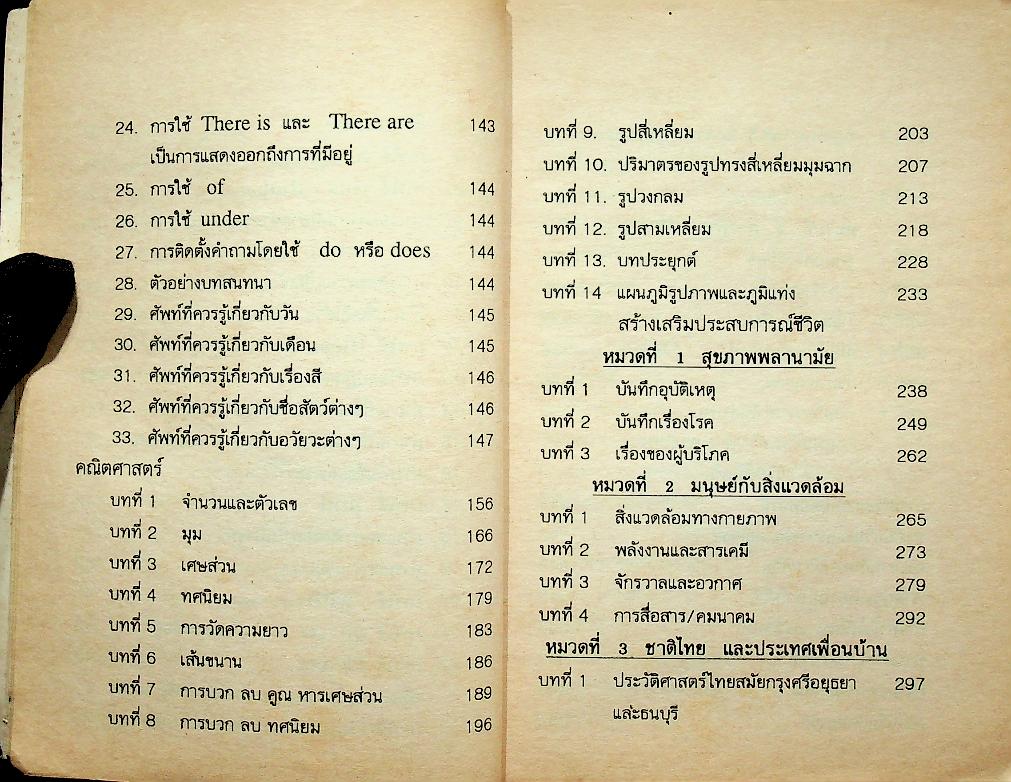 24. การใช้ There is และ There are 143
เป็นการแสดงออกถึงการที่มีอยู่
25. การใช้ of 144
26. การใช้ under 144
27. การติดตั้งคำถามโดยใช้ do หรือ does 144
28. ตัวอย่างบทสนทนา 144
29. ศัพท์ที่ควรรู้เกี่ยวกับวัน 145
30. ศัพท์ที่ควรรู้เกี่ยวกับเดือน 145
31. ศัพท์ที่ควรรู้เกี่ยวกับเรื่องสี 146
32. ศัพท์ที่ควรรู้เกี่ยวกับชื่อสัตว์ต่างๆ 146
33. ศัพท์ที่ควรรู้เกี่ยวกับอวัยวะต่างๆ 147
คณิตศาสตร์
บทที่ 1 จำนวนและตัวเลข 156
บทที่ 2 มุม 166
บทที่ 3 เศษส่วน 172
บทที่ 4 ทศนิยม 179
บทที่ 5 การวัดความยาว 183
บทที่ 6 เส้นขนาน 186
บทที่ 7 การบวก ลบ คูณ หารเศษส่วน 189
บทที่ 8 การบวก ลบ ทศนิยม 196
บทที่ 9. รูปสี่เหลี่ยม 203
บทที่ 10. ปริมาตรของรูปทรงสี่เหลี่ยมมุมฉาก 207
บทที่ 11. รูปวงกลม 213
บทที่ 12. รูปสามเหลี่ยม 218
บทที่ 13. บทประยุกต์ 228
บทที่ 14 แผนภูมิรูปภาพและภูมิแท่ง 233
สร้างเสริมประสบการณ์ชีวิต
หมวดที่ 1 สุขภาพพลานามัย
บทที่ 1 บันทึกอุบัติเหตุ 238
บทที่ 2 บันทึกเรื่องโรค 249
บทที่ 3 เรื่องของผู้บริโภค 262
หมวดที่ 2 มนุษย์กับสิ่งแวดล้อม
บทที่ 1 สิ่งแวดล้อมทางกายภาพ 265
บทที่ 2 พลังงานและสารเคมี 273
บทที่ 3 จักรวาลและอวกาศ 279
บทที่ 4 การสื่อสาร/คมนาคม 292
หมวดที่ 3 ชาติไทย และประเทศเพื่อนบ้าน
บทที่ 1 ประวัติศาสตร์ไทยสมัยกรุงศรีอยุธยา 297
และธนบุรี